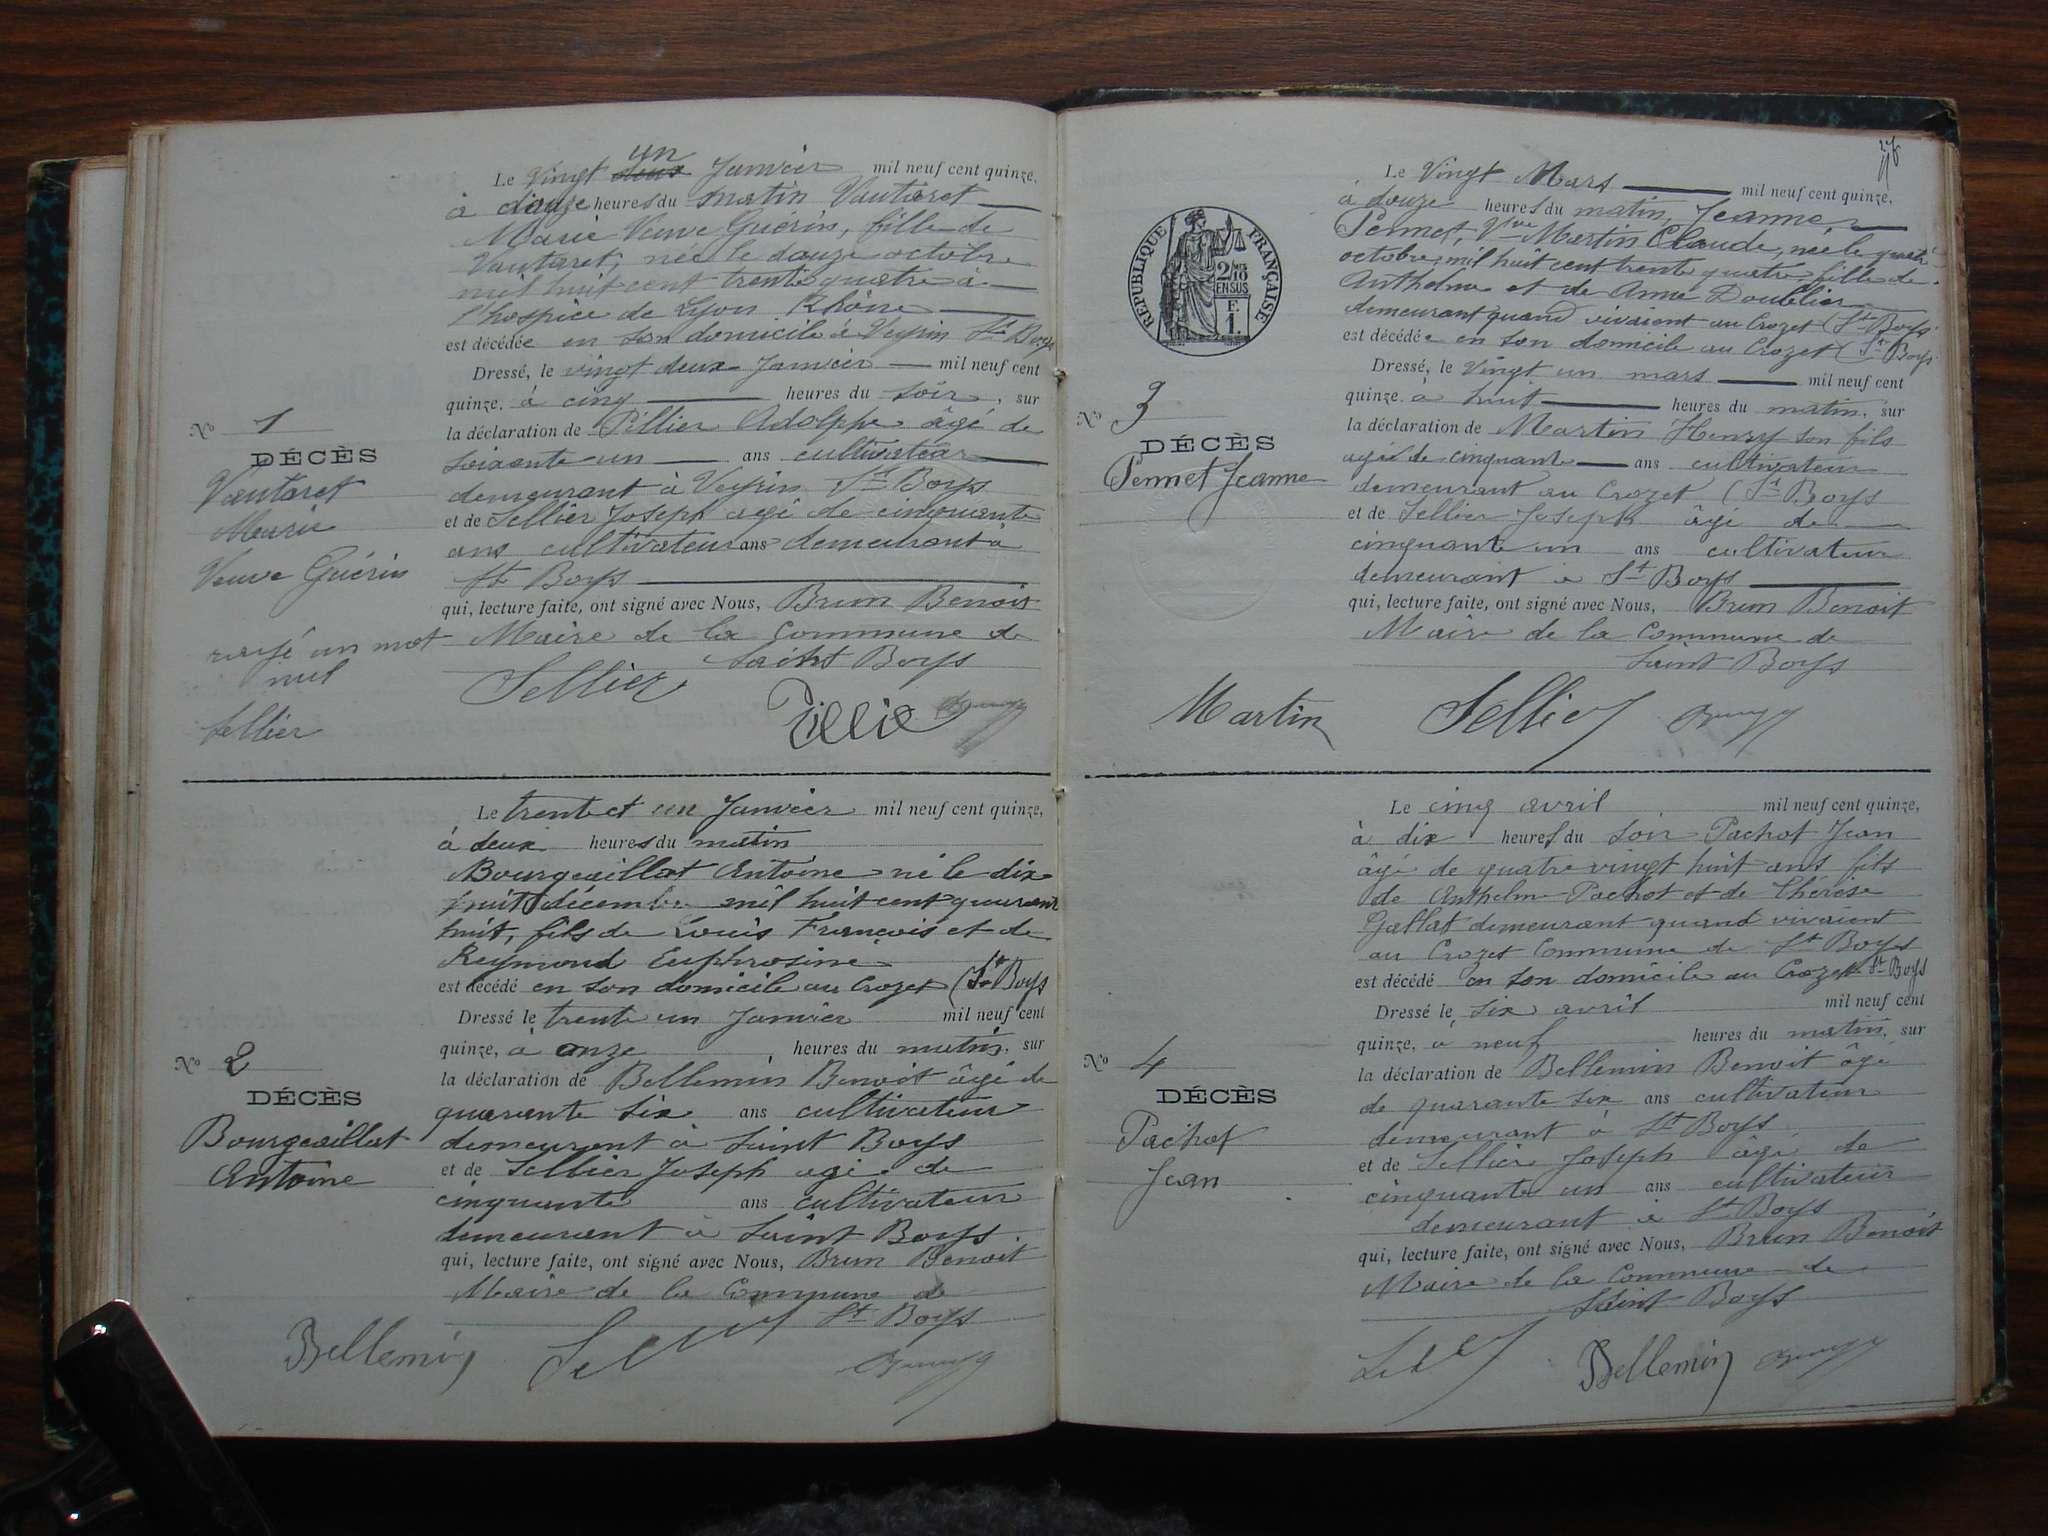 un
Le Vingt deux Janvier mil neuf cent quinze,
à douze heures du matin Vautaret
Marie Veuve Guérin, fille de
Vautaret, née le douze octobre
mil huit cent trente quatre à
l'hospice de Lyon Rhône
est décédée en son domicile à Veyrin St Boys
Dressé, le vingt deux Janvier mil neuf cent
quinze, à cinq heures du soir, sur
la déclaration de Pillier Adolphe âgé de
soixante un ans cultivateur
demeurant à Veyrin St Boys
et de Sellier Joseph agé de cinquante
ans cultivateur ans demeurant à
St Boys
qui, lecture faite, ont signé avec Nous, Brun Benoit
Maire de la Commune de
Saint Boys
Sellier Pillie
No 1
DÉCÈS
Vautaret
Marie
Veuve Guérin
rayé un mot
nul
Sellier
Le trente et un Janvier mil neuf cent quinze,
à deux heures du matin
Bourgeaillat Antoine né le dix
huit décembre mil huit cent quarante
huit, fils de Louis François et de
Reymond Euphrosine
est décédé en son domicile au Crozet (St Boys
Dressé le trente un Janvier mil neuf cent
quinze, à onze heures du matin, sur
la déclaration de Bellemin Benoit âgé de
quarante six ans cultivateur
demeurant à Saint Boys
et de Sellier Joseph agé de
cinquante ans cultivateur
demeurant à Saint Boys
qui, lecture faite, ont signé avec Nous, Brun Benoit
Maire de la Commune de
St Boys
Bellemin
No 2
DÉCÈS
Bourgeaillat
Antoine
RÉPUBLIQUE FRANÇAISE
2/10 EN SUS
F.
1.
Le Vingt Mars mil neuf cent quinze,
à douze heures du matin, Jeanne
Pennet, Vve Martin Claude, née le quatre
octobre mil huit cent trente quatre, fille de
Anthelme et de Anne Doublier
demeurant quand vivaient au Crozet (St Boys
est décédée en son domicile au Crozet (St Boys
Dressé, le Vingt un mars mil neuf cent
quinze, à huit heures du matin, sur
la déclaration de Martin Henry son fils
agé de cinquante ans cultivateur
demeurant au Crozet (St Boys
et de Sellier Joseph âgé de
cinquante un ans cultivateur
demeurant à St Boys
qui, lecture faite, ont signé avec Nous, Brun Benoit
Maire de la Commune de
Saint Boys
Martin Sellier
No 3
DÉCÈS
Pennet Jeanne
Le cinq avril mil neuf cent quinze,
à dix heures du soir Pachot Jean
âgé de quatre vingt huit ans fils
de Anthelm Pachot et de Thérèse
Gallat demeurant quand vivaient
au Crozet Commune de St Boys
est décédé en son domicile au Crozet St Boys
Dressé le six avril mil neuf cent
quinze, à neuf heures du matin, sur
la déclaration de Bellemin Benoit âgé
de quarante six ans cultivateur
demeurant à St Boys
et de Sellier Joseph âgé de
cinquante un ans cultivateur
demeurant à St Boys
qui, lecture faite, ont signé avec Nous, Brun Benoit
Maire de la Commune de
Saint Boys
Bellemin
No 4
DÉCÈS
Pachot
Jean